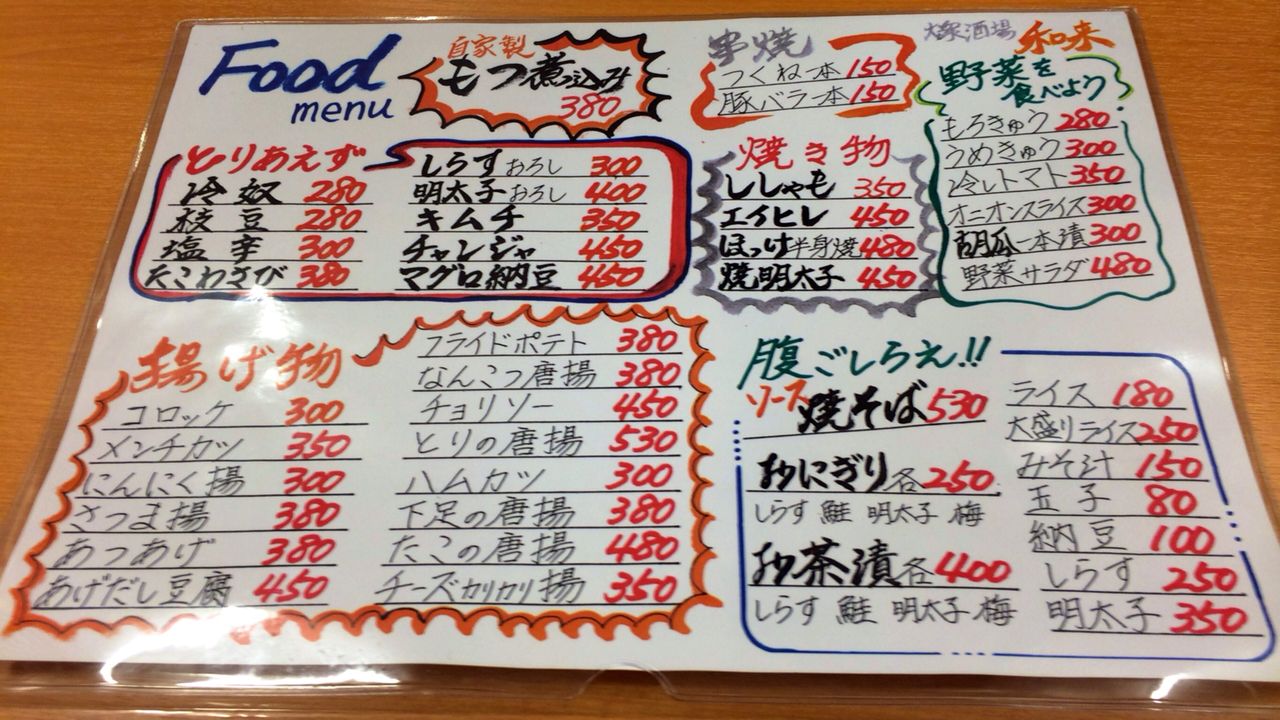 Food
menu
自家製
もつ煮込み
380
串焼
つくね一本 150
豚バラ一本 150
大衆酒場 和来
とりあえず
冷奴 280
枝豆 280
塩辛 300
たこわさび 380
しらすおろし 300
明太子おろし 400
キムチ 350
チャンジャ 450
マグロ納豆 450
焼き物
ししゃも 350
エイヒレ 450
ほっけ半身焼 480
焼明太子 450
野菜を
食べよう
もろきゅう 280
うめきゅう 300
冷しトマト 350
オニオンスライス 300
胡瓜一本漬 300
野菜サラダ 480
揚げ物
コロッケ 300
メンチカツ 350
にんにく揚 300
さつま揚 380
あつあげ 380
あげだし豆腐 450
フライドポテト 380
なんこつ唐揚 380
チョリソー 450
とりの唐揚 530
ハムカツ 300
下足の唐揚 380
たこの唐揚 480
チーズカリカリ揚 350
腹ごしらえ!!
ソース焼そば 530
おにぎり各250
しらす 鮭 明太子 梅
お茶漬各400
しらす 鮭 明太子 梅
ライス 180
大盛りライス 250
みそ汁 150
玉子 80
納豆 100
しらす 250
明太子 350